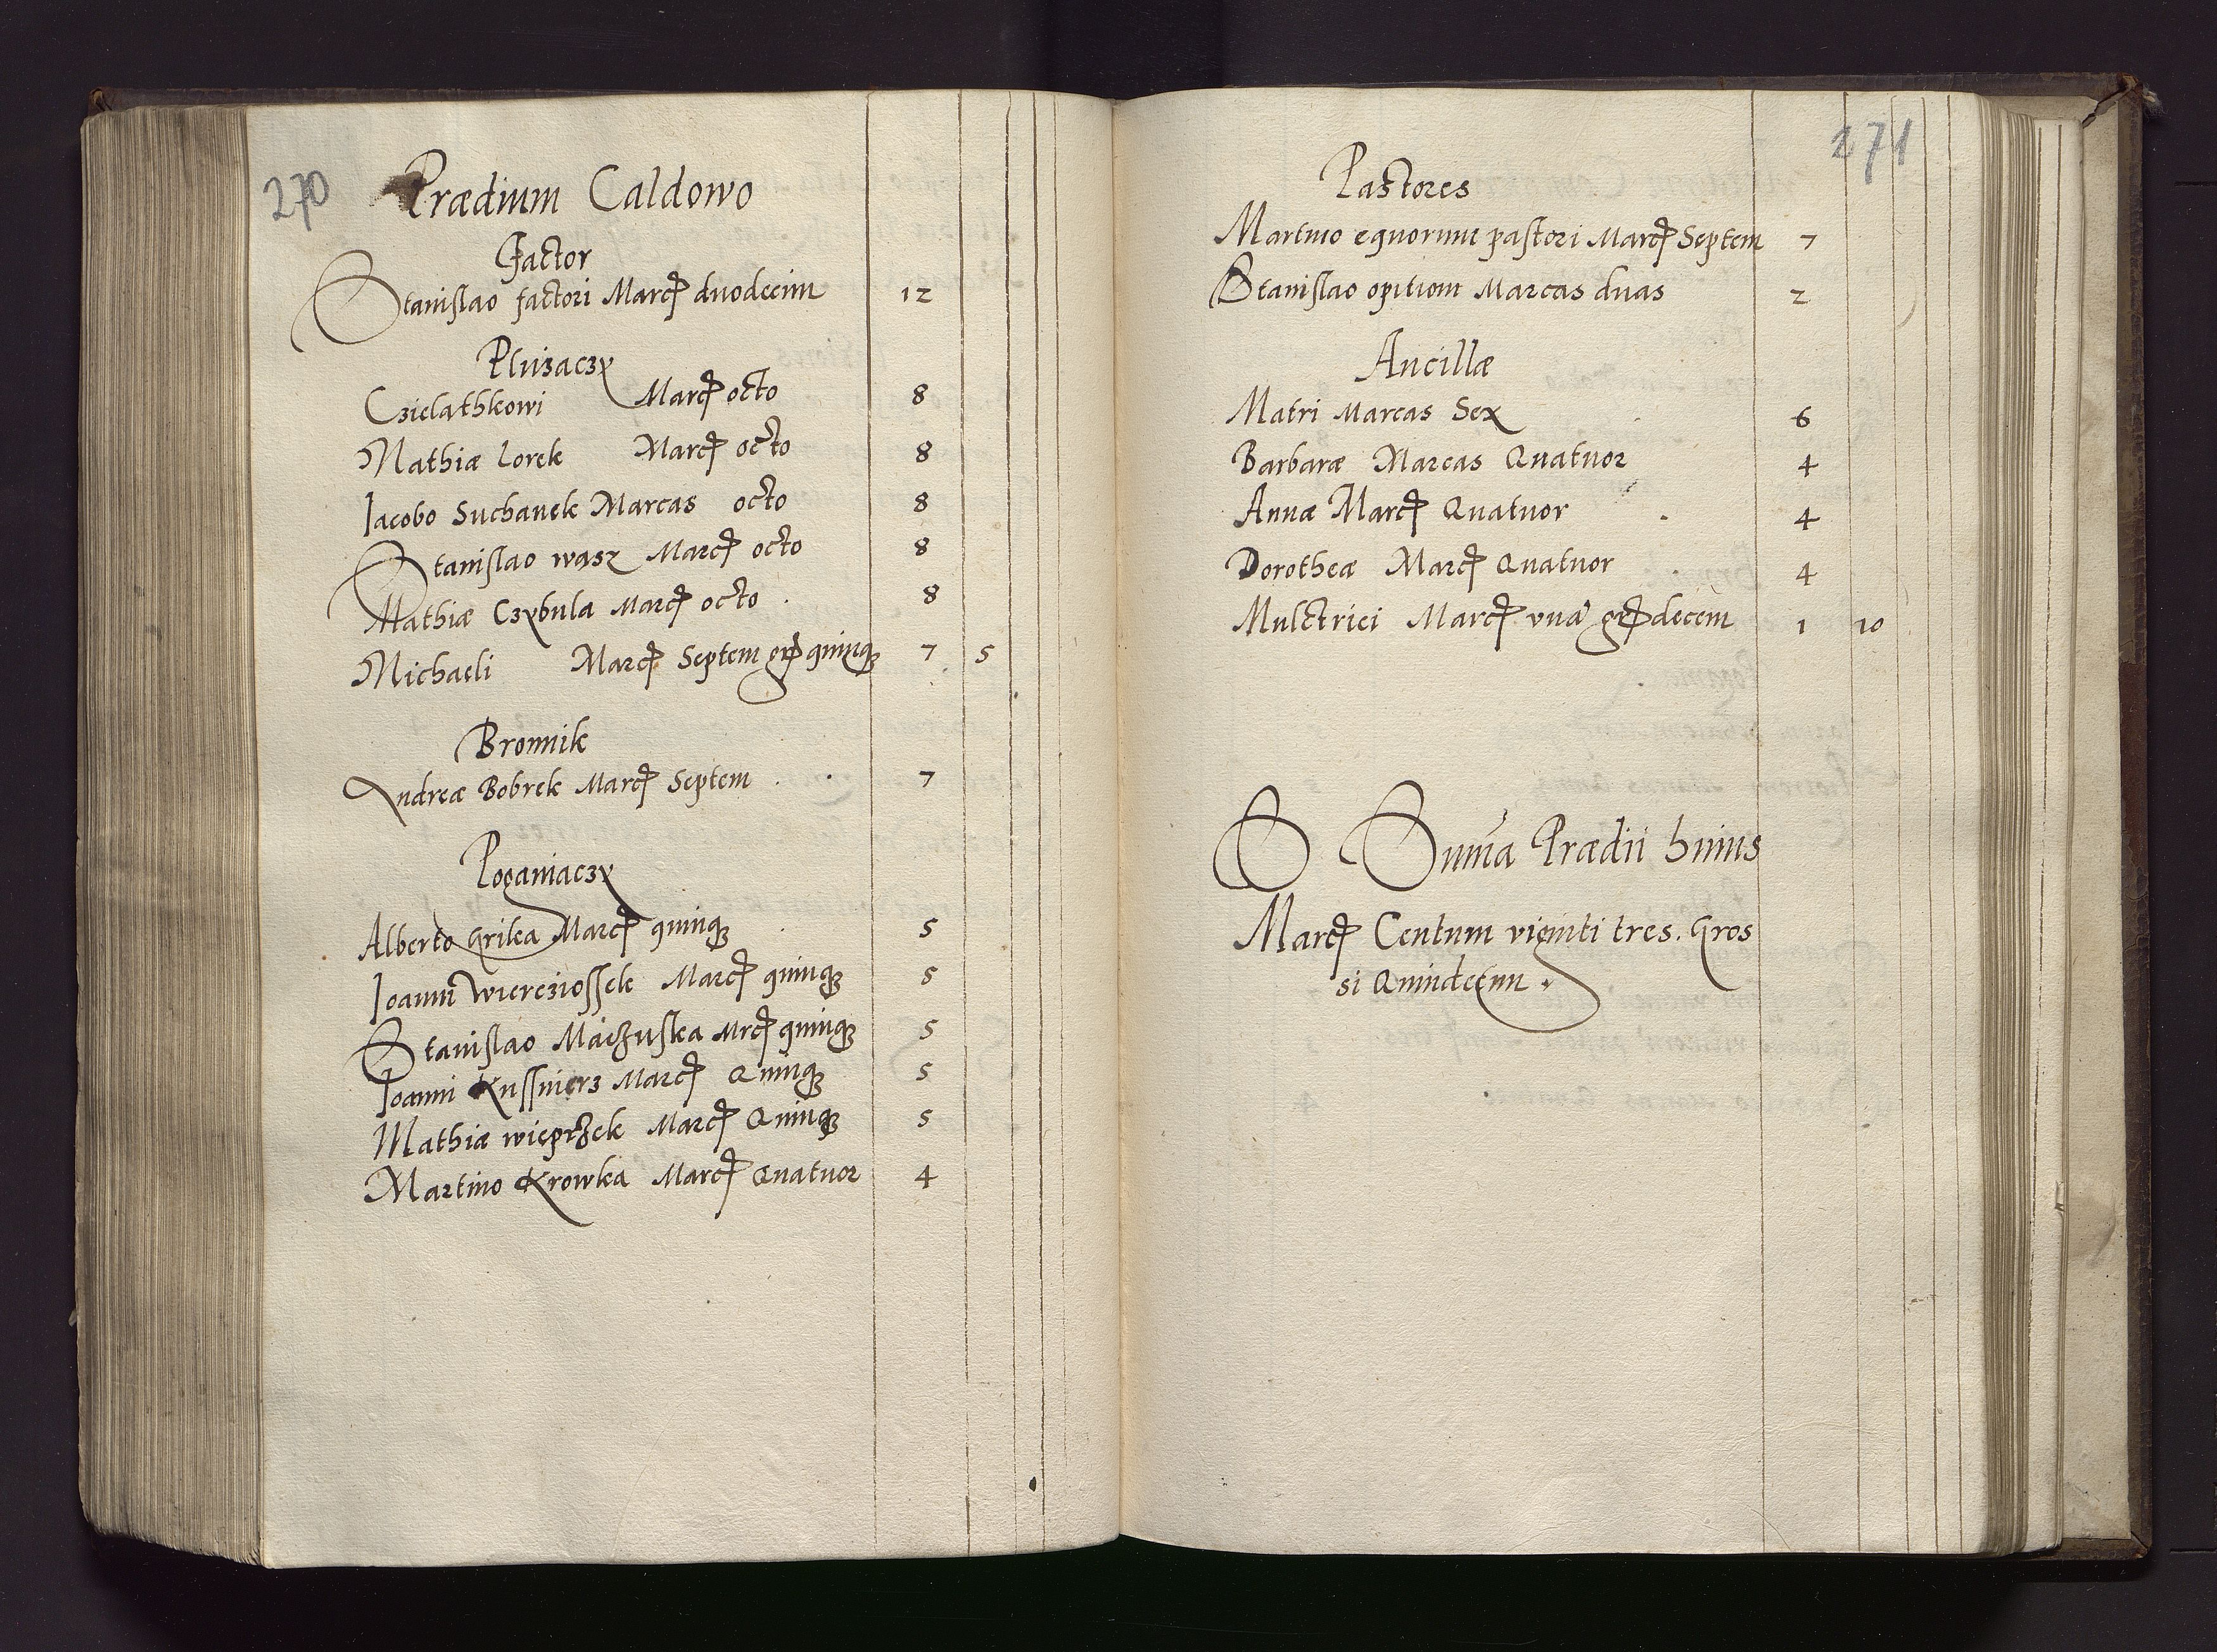 270
Prædium Caldowo
Factor
Stanislao factori Marcas duodecim 12
Pluzaczy
Czielathkowi Marcas octo 8
Mathiæ Lorek Marcas octo 8
Iacobo Suchanek Marcas octo 8
Stanislao wąsz Marcas octo 8
Mathiæ Czybula Marcas octo 8
Michaeli Marcas Septem gros quinque 7 5
Bronnik
Andreæ Bobrek Marcas Septem 7
Poganiaczy
Alberto Grilka Marcas quinque 5
Ioanni Wiercziossek Marcas quinque 5
Stanislao Maczuska Mrcas quinque 5
Ioanni Kussnierz Marcas Quinque 5
Mathiæ wieprzek Marcas Quinque 5
Martino Krowka Marcas Quatuor 4
271
Pastores
Martino equorum pastori Marcas Septem 7
Stanislao opilioni Marcas duas 2
Ancillæ
Matri Marcas Sex 6
Barbaræ Marcas Quatuor 4
Annæ Marcas Quatuor 4
Dorotheæ Marcas Quatuor 4
Mulctrici Marcas vnā gros decem 1 10
Sum̄a Prædii huius
Marcas Centum viginti tres. Gros
si Quindecim.